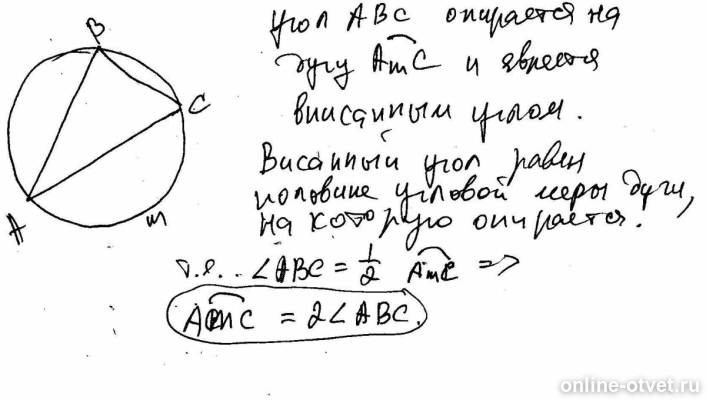 B
C
A
m
Угол ABC опирается на
дугу AmC и является
вписанным углом.
Вписанный угол равен
половине угловой меры дуги,
на которую опирается.
т.е. ∠ABC = 1/2 AmC =>
AmC = 2∠ABC.
online-otvet.ru